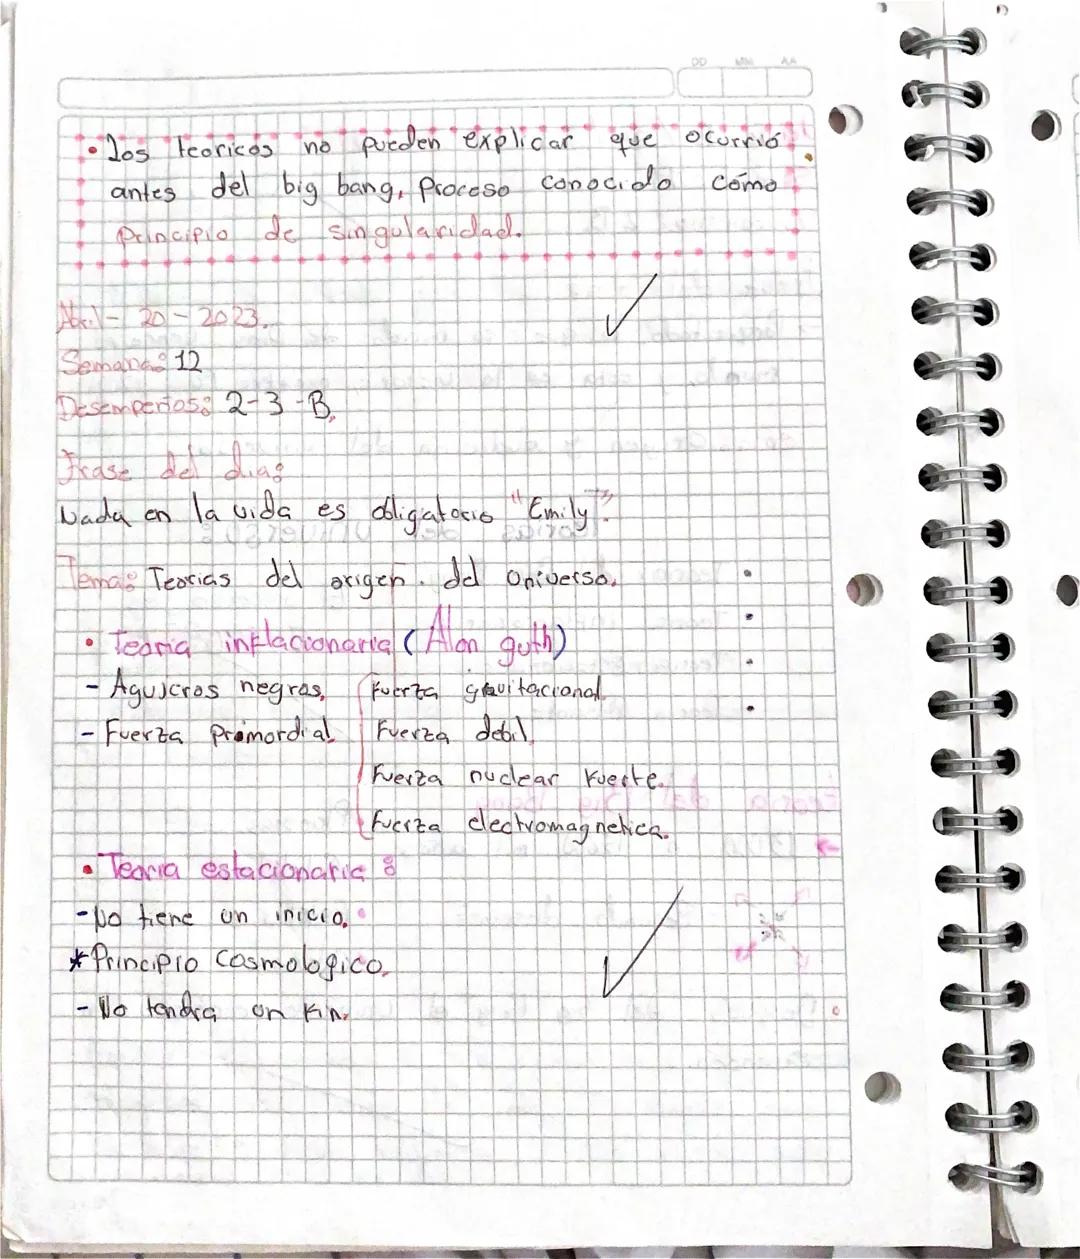 DD MM AA
• Los teoricos no pueden explicar que ocurrió
antes del big bang, Proceso conocido cómo
Principio de singularidad.
Abril - 20 - 2023.
Semana: 12
Desempeños: 2-3-B.
Frase del dia:
Nada en la vida es obligatorio "Emily".
Tema: Teorias del origen del universo.
• Teoria inflacionaria (Alan guth)
- Agujeros negros, Fuerza gravitacional
- Fuerza Primordial. Fuerza debil,
Fuerza nuclear Fuerte.
Fuerza electromagnetica.
• Teoria estacionaria :
- No tiene un inicio.
* Principio Cosmologico.
- No tendra un Fin.